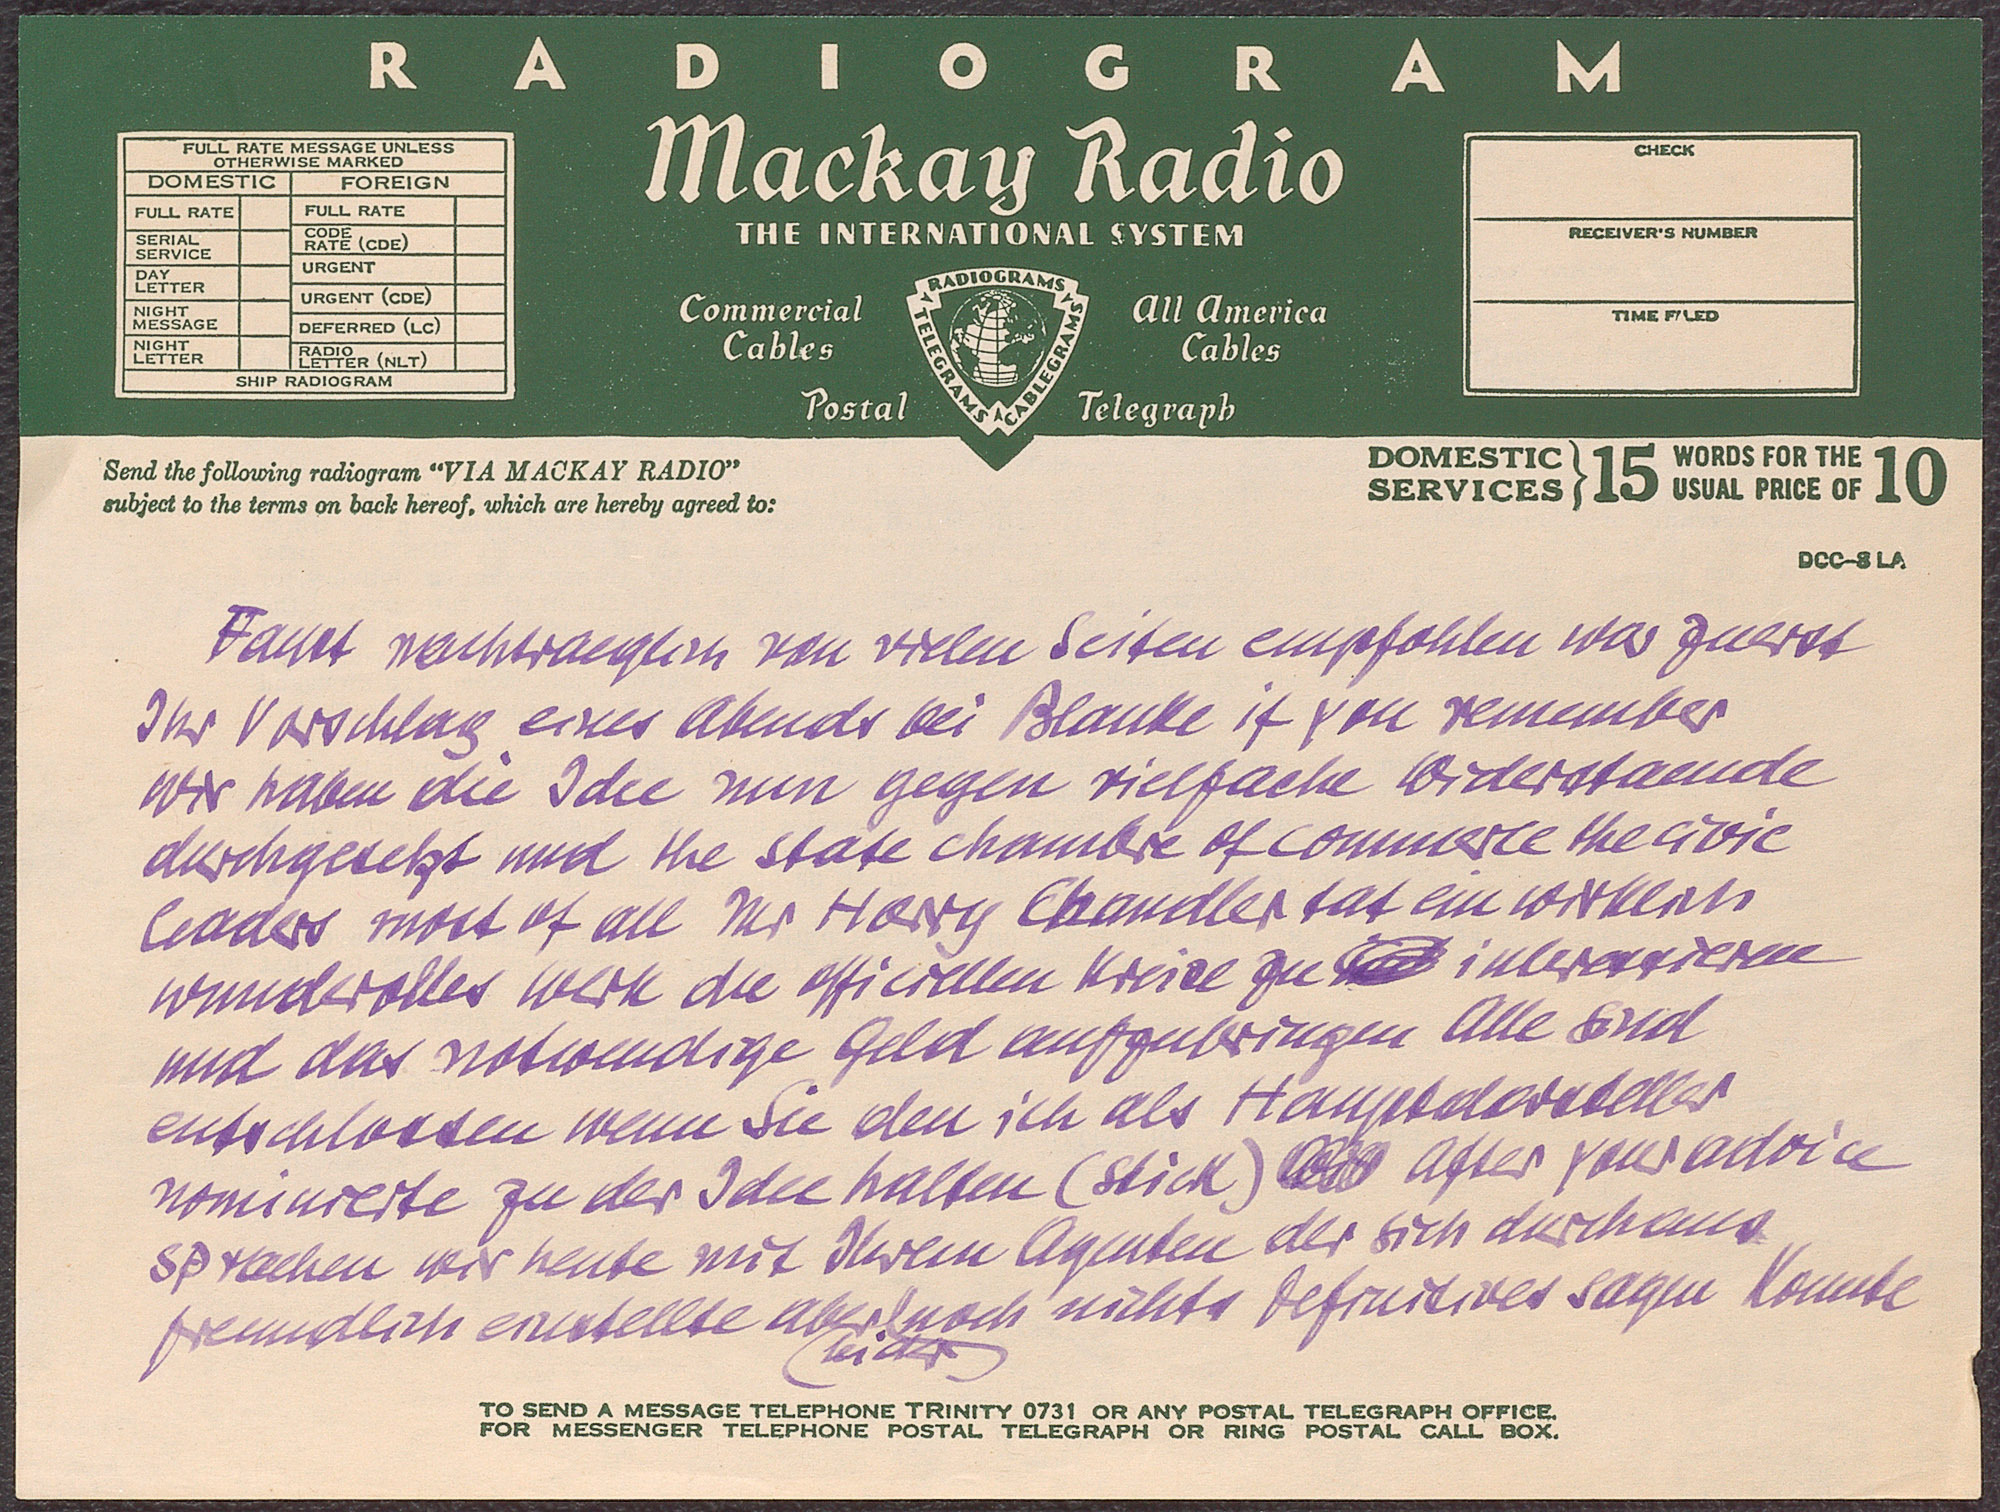 RADIOGRAM
Mackay Radio
THE INTERNATIONAL SYSTEM
FULL RATE MESSAGE UNLESS
OTHERWISE MARKED
DOMESTIC FOREIGN
FULL RATE FULL RATE
SERIAL SERVICE CODE RATE (CDE)
DAY LETTER URGENT
NIGHT MESSAGE URGENT (CDE)
NIGHT LETTER DEFERRED (LC)
RADIO LETTER (NLT)
SHIP RADIOGRAM
Commercial Cables
All America Cables
Postal Telegraph
RADIOGRAMS TELEGRAMS CABLEGRAMS
CHECK
RECEIVER'S NUMBER
TIME FILED
Send the following radiogram "VIA MACKAY RADIO"
subject to the terms on back hereof, which are hereby agreed to:
DOMESTIC SERVICES } 15 WORDS FOR THE USUAL PRICE OF 10
DCC-8 LA
Faust nachtraeglich von vielen Seiten empfohlen war zuerst
Ihr Vorschlag eines Abends bei Blanke if you remember
wir haben die Idee nun gegen vielfache Widerstaende
durchgesetzt und the state chambre of commerce the civic
leaders most of all Mr Harry Chandler tat ein wirklich
wundervolles Werk die officiellen Kreise zu interessieren
und das notwendige Geld aufzubringen Alle sind
entschlossen wenn Sie den ich als Hauptdarsteller
nominierte zu der Idee halten (stick) After your advice
sprachen wir heute mit Ihrem Agenten der sich durchaus
freundlich einstellte aber leider noch nichts Definitives sagen konnte
TO SEND A MESSAGE TELEPHONE TRINITY 0731 OR ANY POSTAL TELEGRAPH OFFICE.
FOR MESSENGER TELEPHONE POSTAL TELEGRAPH OR RING POSTAL CALL BOX.